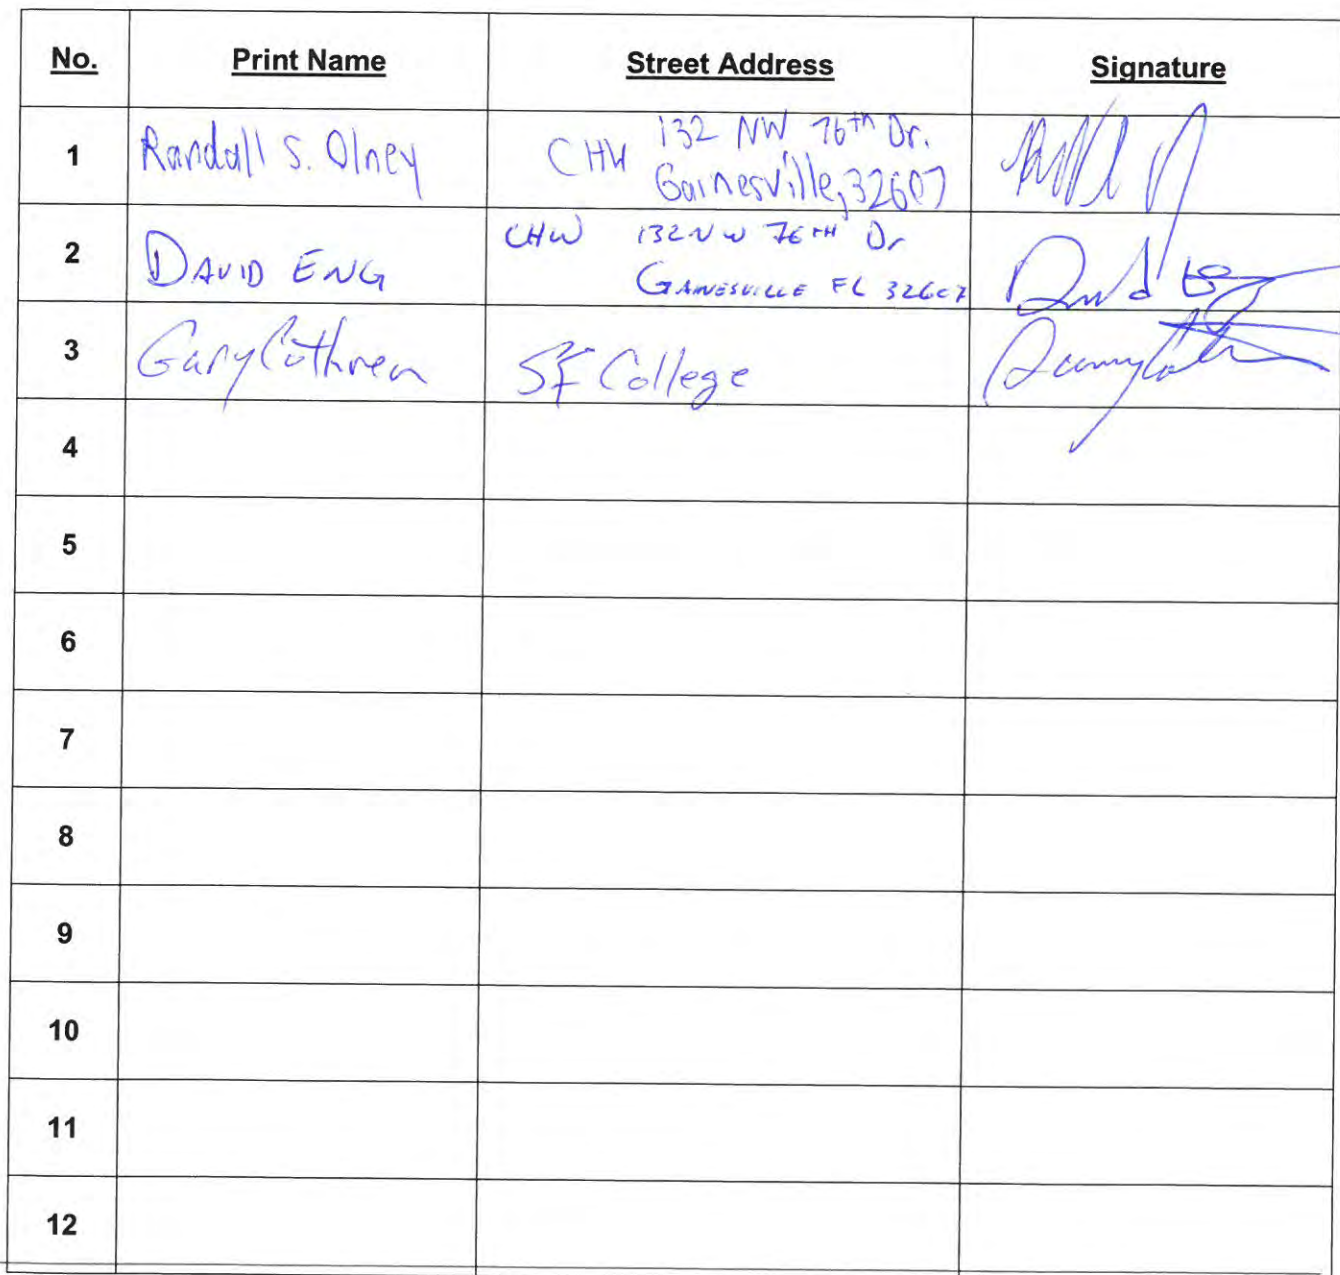 No. Print Name Street Address Signature
1 Randall S. Olney CHW 132 NW 76th Dr.
Gainesville, 32607
2 DAVID ENG CHW 132 NW 76TH Dr
GAINESVILLE FL 32607
3 Gary Cothren SF College
4
5
6
7
8
9
10
11
12